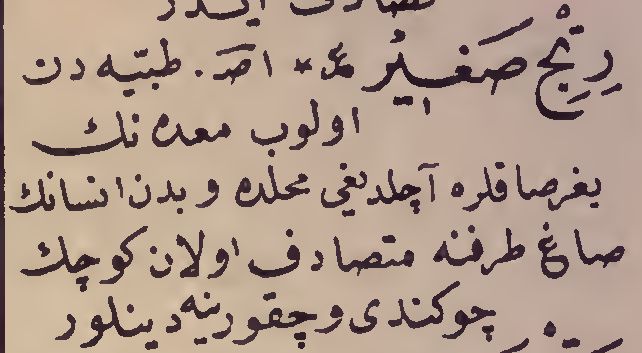 تصادف ایدر
رِتْجِ صَغیْر ع * اصـ . طبیّه دن
اولوب معده نك
بغرصاقلره آچلدیغی محلده و بدن انسانك
صاغ طرفنه متصادف اولان كوچك
چوكندی و چقورینه دینلور